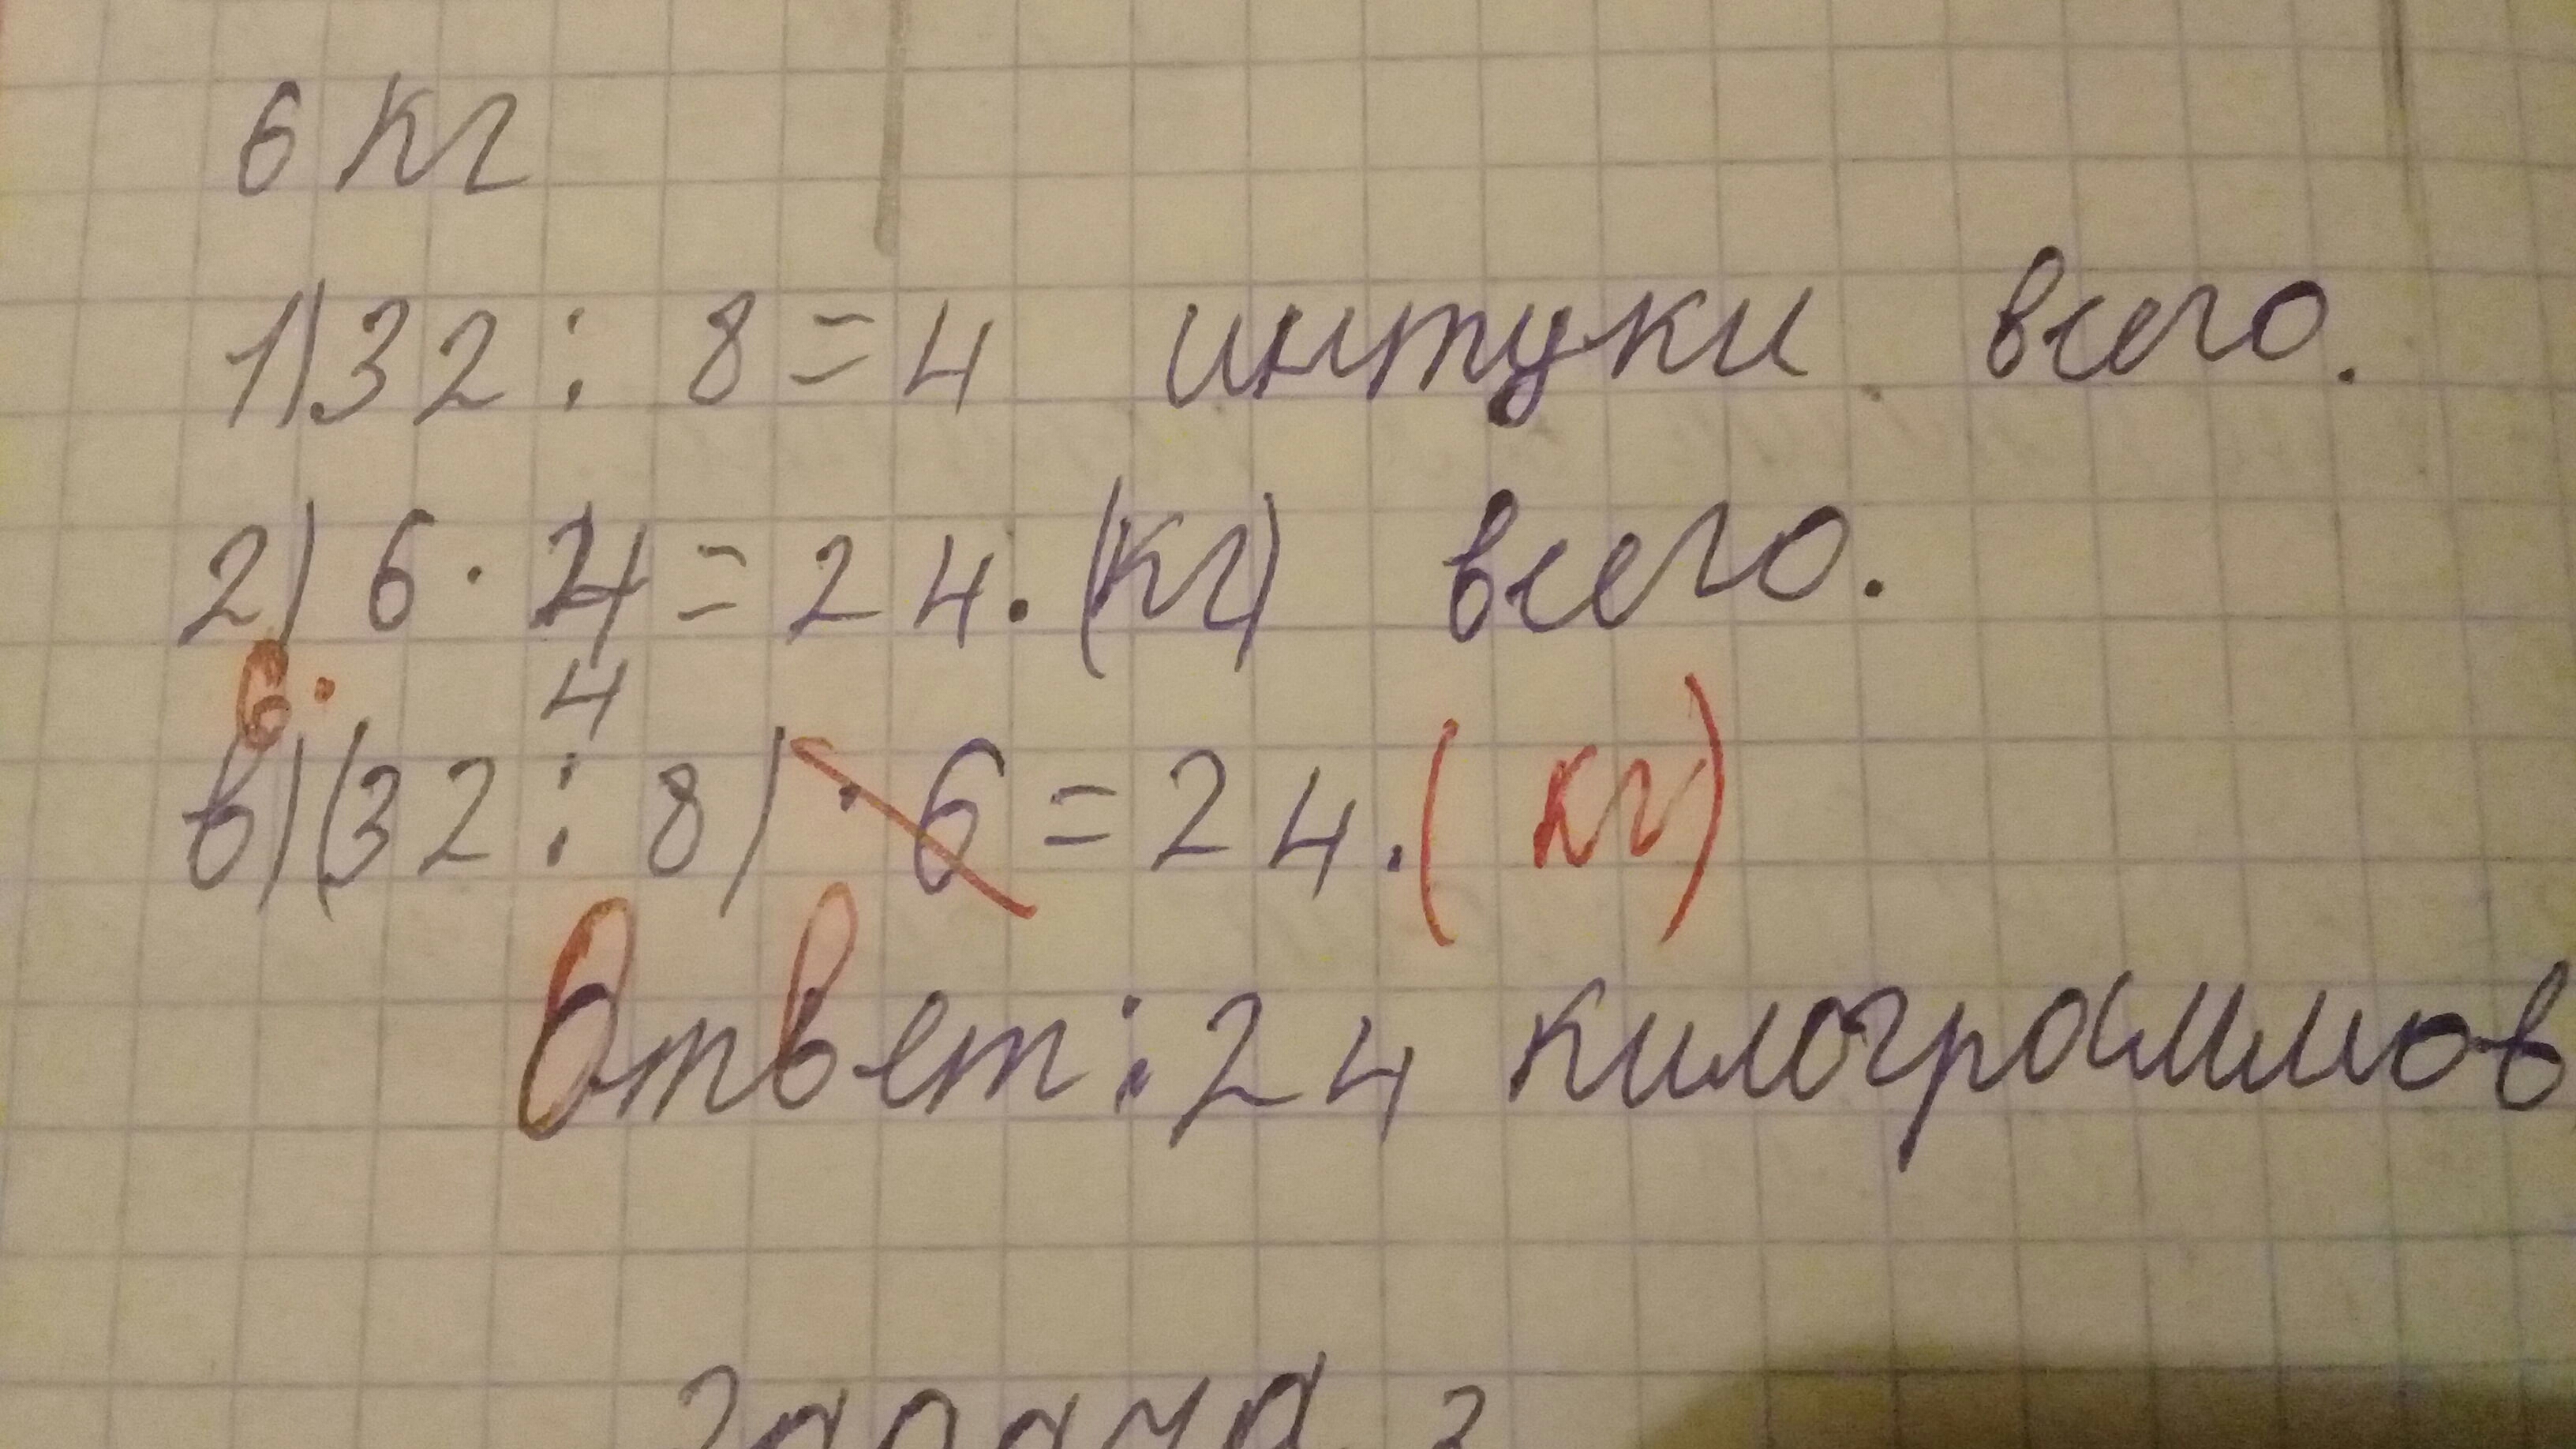 6 кг
1) 32 : 8 = 4 штуки всего.
2) 6 · 4 = 24. (кг) всего.
6 · 4
в) (32 : 8) · 6 = 24. (кг)
Ответ: 24 килограммов
Задача 3